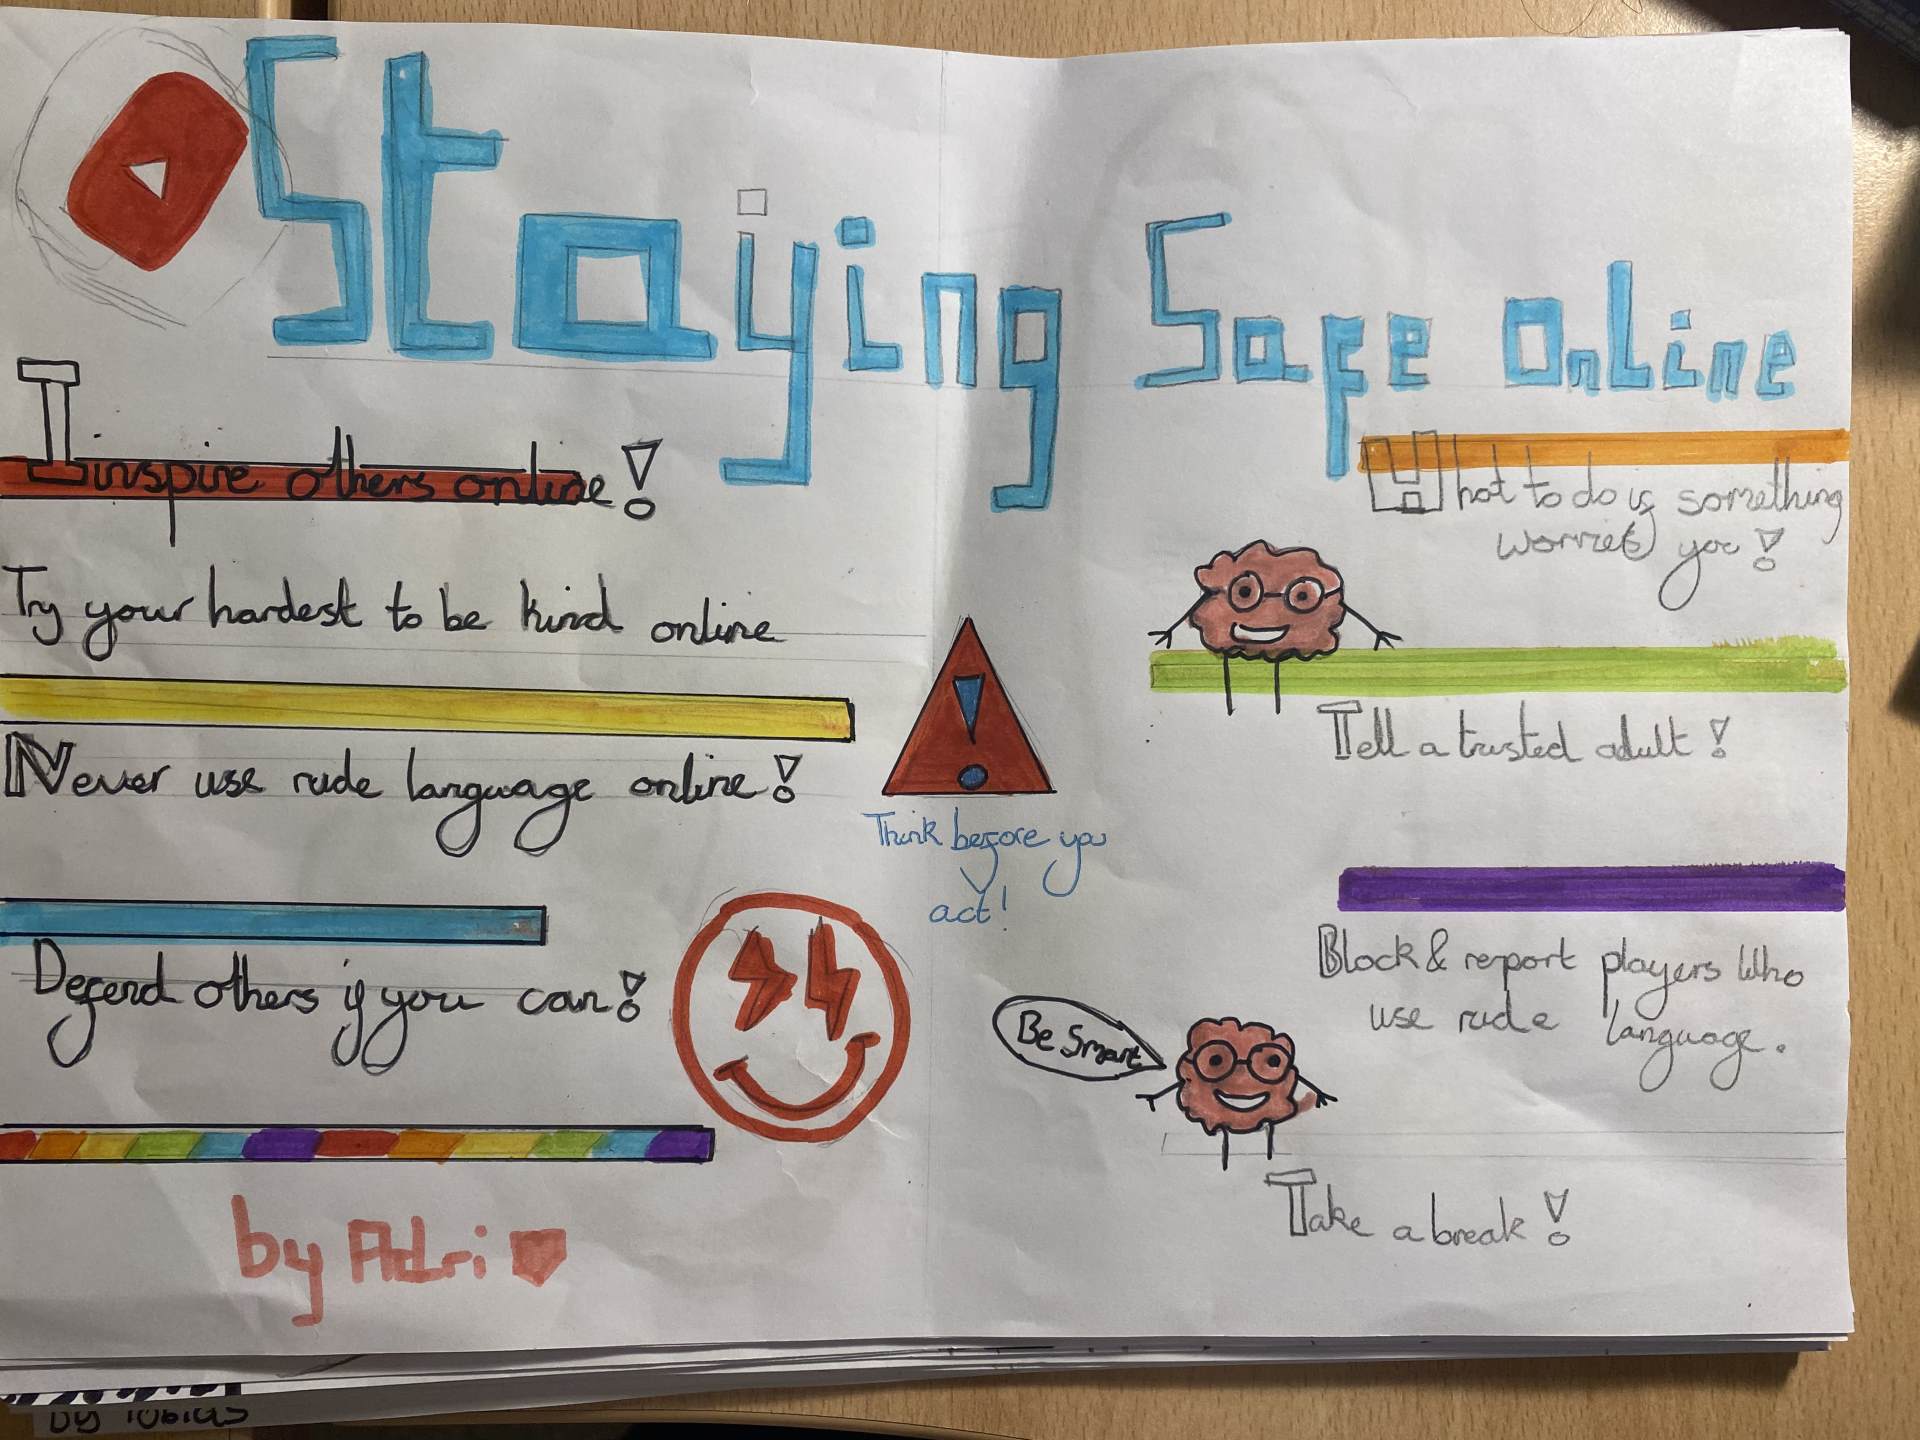 Staying Safe Online
Iinspire others online!
Try your hardest to be kind online
Never use rude language online!
Defend others if you can!
by Adri
Think before you
act!
What to do if something
worries you!
Tell a trusted adult!
Block & report players who
use rude language.
Be Smart
Take a break!
by Tobias